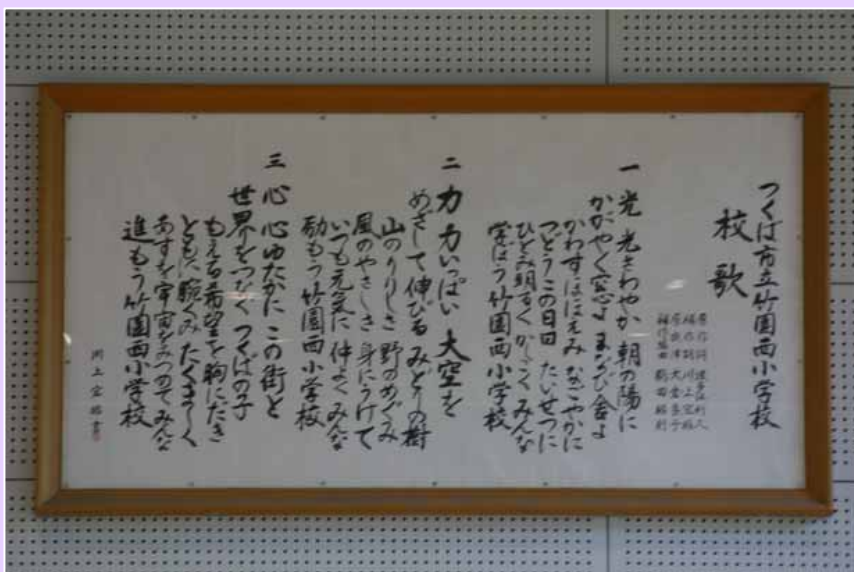 つくば市立竹園西小学校
校歌
一 光 光さわやか 朝の陽に
かがやく窓よ まなび舎よ
かわすほほえみ なごやかに
つどうこの日日 たいせつに
ひとみ明るく かしこくみんな
学ぼう竹園西小学校
二 力 力いっぱい 大空を
めざして伸びる みどりの樹
山のりりしさ 野のめぐみ
風のやさしさ 身にうけて
いつも元気に 仲よくみんな
励もう竹園西小学校
三 心 心ゆたかに この街と
世界をつなぐ つくばの子
もえる希望を 胸にだき
ともに腕くみ たくましく
あすを宇宙を みつめてみんな
進もう竹園西小学校